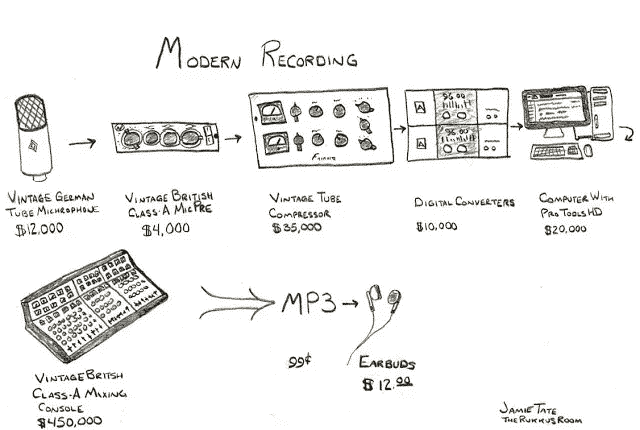 MODERN RECORDING
VINTAGE GERMAN
TUBE MICHROPHONE
$12,000
VINTAGE BRITISH
CLASS-A MIC PRE
$4,000
VINTAGE TUBE
COMPRESSOR
$35,000
96.00
96.00
DIGITAL CONVERTERS
$10,000
COMPUTER WITH
PRO TOOLS HD
$20,000
VINTAGE BRITSH
CLASS-A MIXING
CONSOLE
$450,000
MP3
99¢
EARBUDS
$12.00
JAMIE TATE
THE RUKKUS ROOM